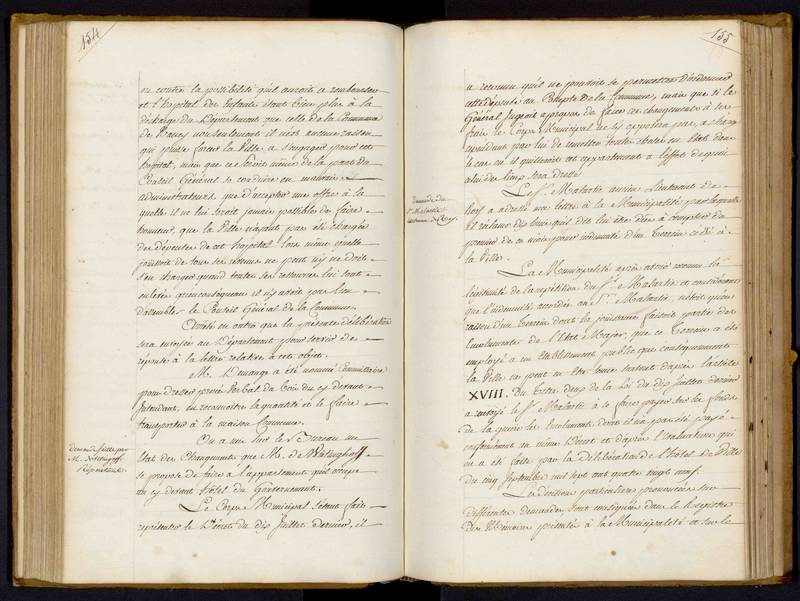 154
ou contre la possibilité qu'il auroit a rembourser
et l'hopital des Enfants étant bien plus à la
décharge du Département que celle de la Commune
de Nancy non seulement il n'est aucune raison
qui puisse forcer la Ville a s'engager pour cet
hopital, mais que ce seroit même de la part du
Conseil Général se conduire en mauvais
administrateurs que d'accepter une offre à la
quelle il ne lui seroit jamais possible de faire
honneur, que la Ville n'ayant pas été chargée
des dépenses de cet hopital lors même qu'elle
jouissoit de tous ses revenus ne peut ny ne doit
s'en charger quand toutes ses ressources lui sont
enlevées qu'en conséquence il n'y avoit pas lieu
d'assembler le Conseil Général de la Commune.
Arrêté en outre que la présente délibération
sera envoyée au Département pour servir de
réponse à la lettre relative a cet objet.
M. a été nommé Commissaire
pour dresser procès Verbal du bois du cy devant
Intendant, en reconnoitre la quantité et le faire
transporter à la maison Commune.
On a mis sur le Bureau un
Demande faite par
M.
Etat des Changements que M. de
se propose de faire a l'appartement qu'il occupe
au cy devant hôtel du Gouvernement.
Le Corps Municipal s'étant fait
représenter le Décret du dix Juillet dernier, il
155
a reconnu qu'il ne pouvoit se permettre d'ordonner
cette dépense au Compte de la Commune, mais que si le
Général jugeoit apropos de faire ces changements à ses
frais le Corps Municipal ne s'y opposera pas, a charge
cependant par lui de remettre toutes choses en Etat dans
le cas où il quitteroit cet appartement a l'effet de quoi
Etat des lieux sera dressé
Demande du
Sr. Malartie
Lieutenant de Roy.
Le Sr. Malartie ancien Lieutenant de
Roy a adressé une lettre à la Municipalité par laquelle
Il réclame dix louis qu'il dit lui être dus à compter du
premier de ce mois pour indemnité d'un Terrein cédé à
la Ville.
La Municipalité après avoir reconnu la
légitimité de la répétition du Sr. Malartie et considérant
que l'indemnité accordée au Sr. Malartie, n'étoit qu'en
raison d'un terrein dont la jouissance faisoit partie des
Emoluments de l'Etat Major, que ce Terrein a été
employé a un établissement public que conséquemment
la Ville ne peut en être tenue surtout d'après l'article
XVIII. du Titre deux de la Loi du dix Juillet dernier
a renvoyé le Sr. Malartie à se faire payer sur les fonds
de la guerre les Emoluments dont il n'a pas été payé
conformément au même Décret et d'après l'évaluation qui
en a été faite par la délibération de l'Hôtel de Ville
du cinq Septembre mil sept cent quatre vingt neuf.
Les décisions particulières prononcées sur
différentes demandes, sont consignées dans le Registre
des Mémoires présentés à la Municipalité et sur le